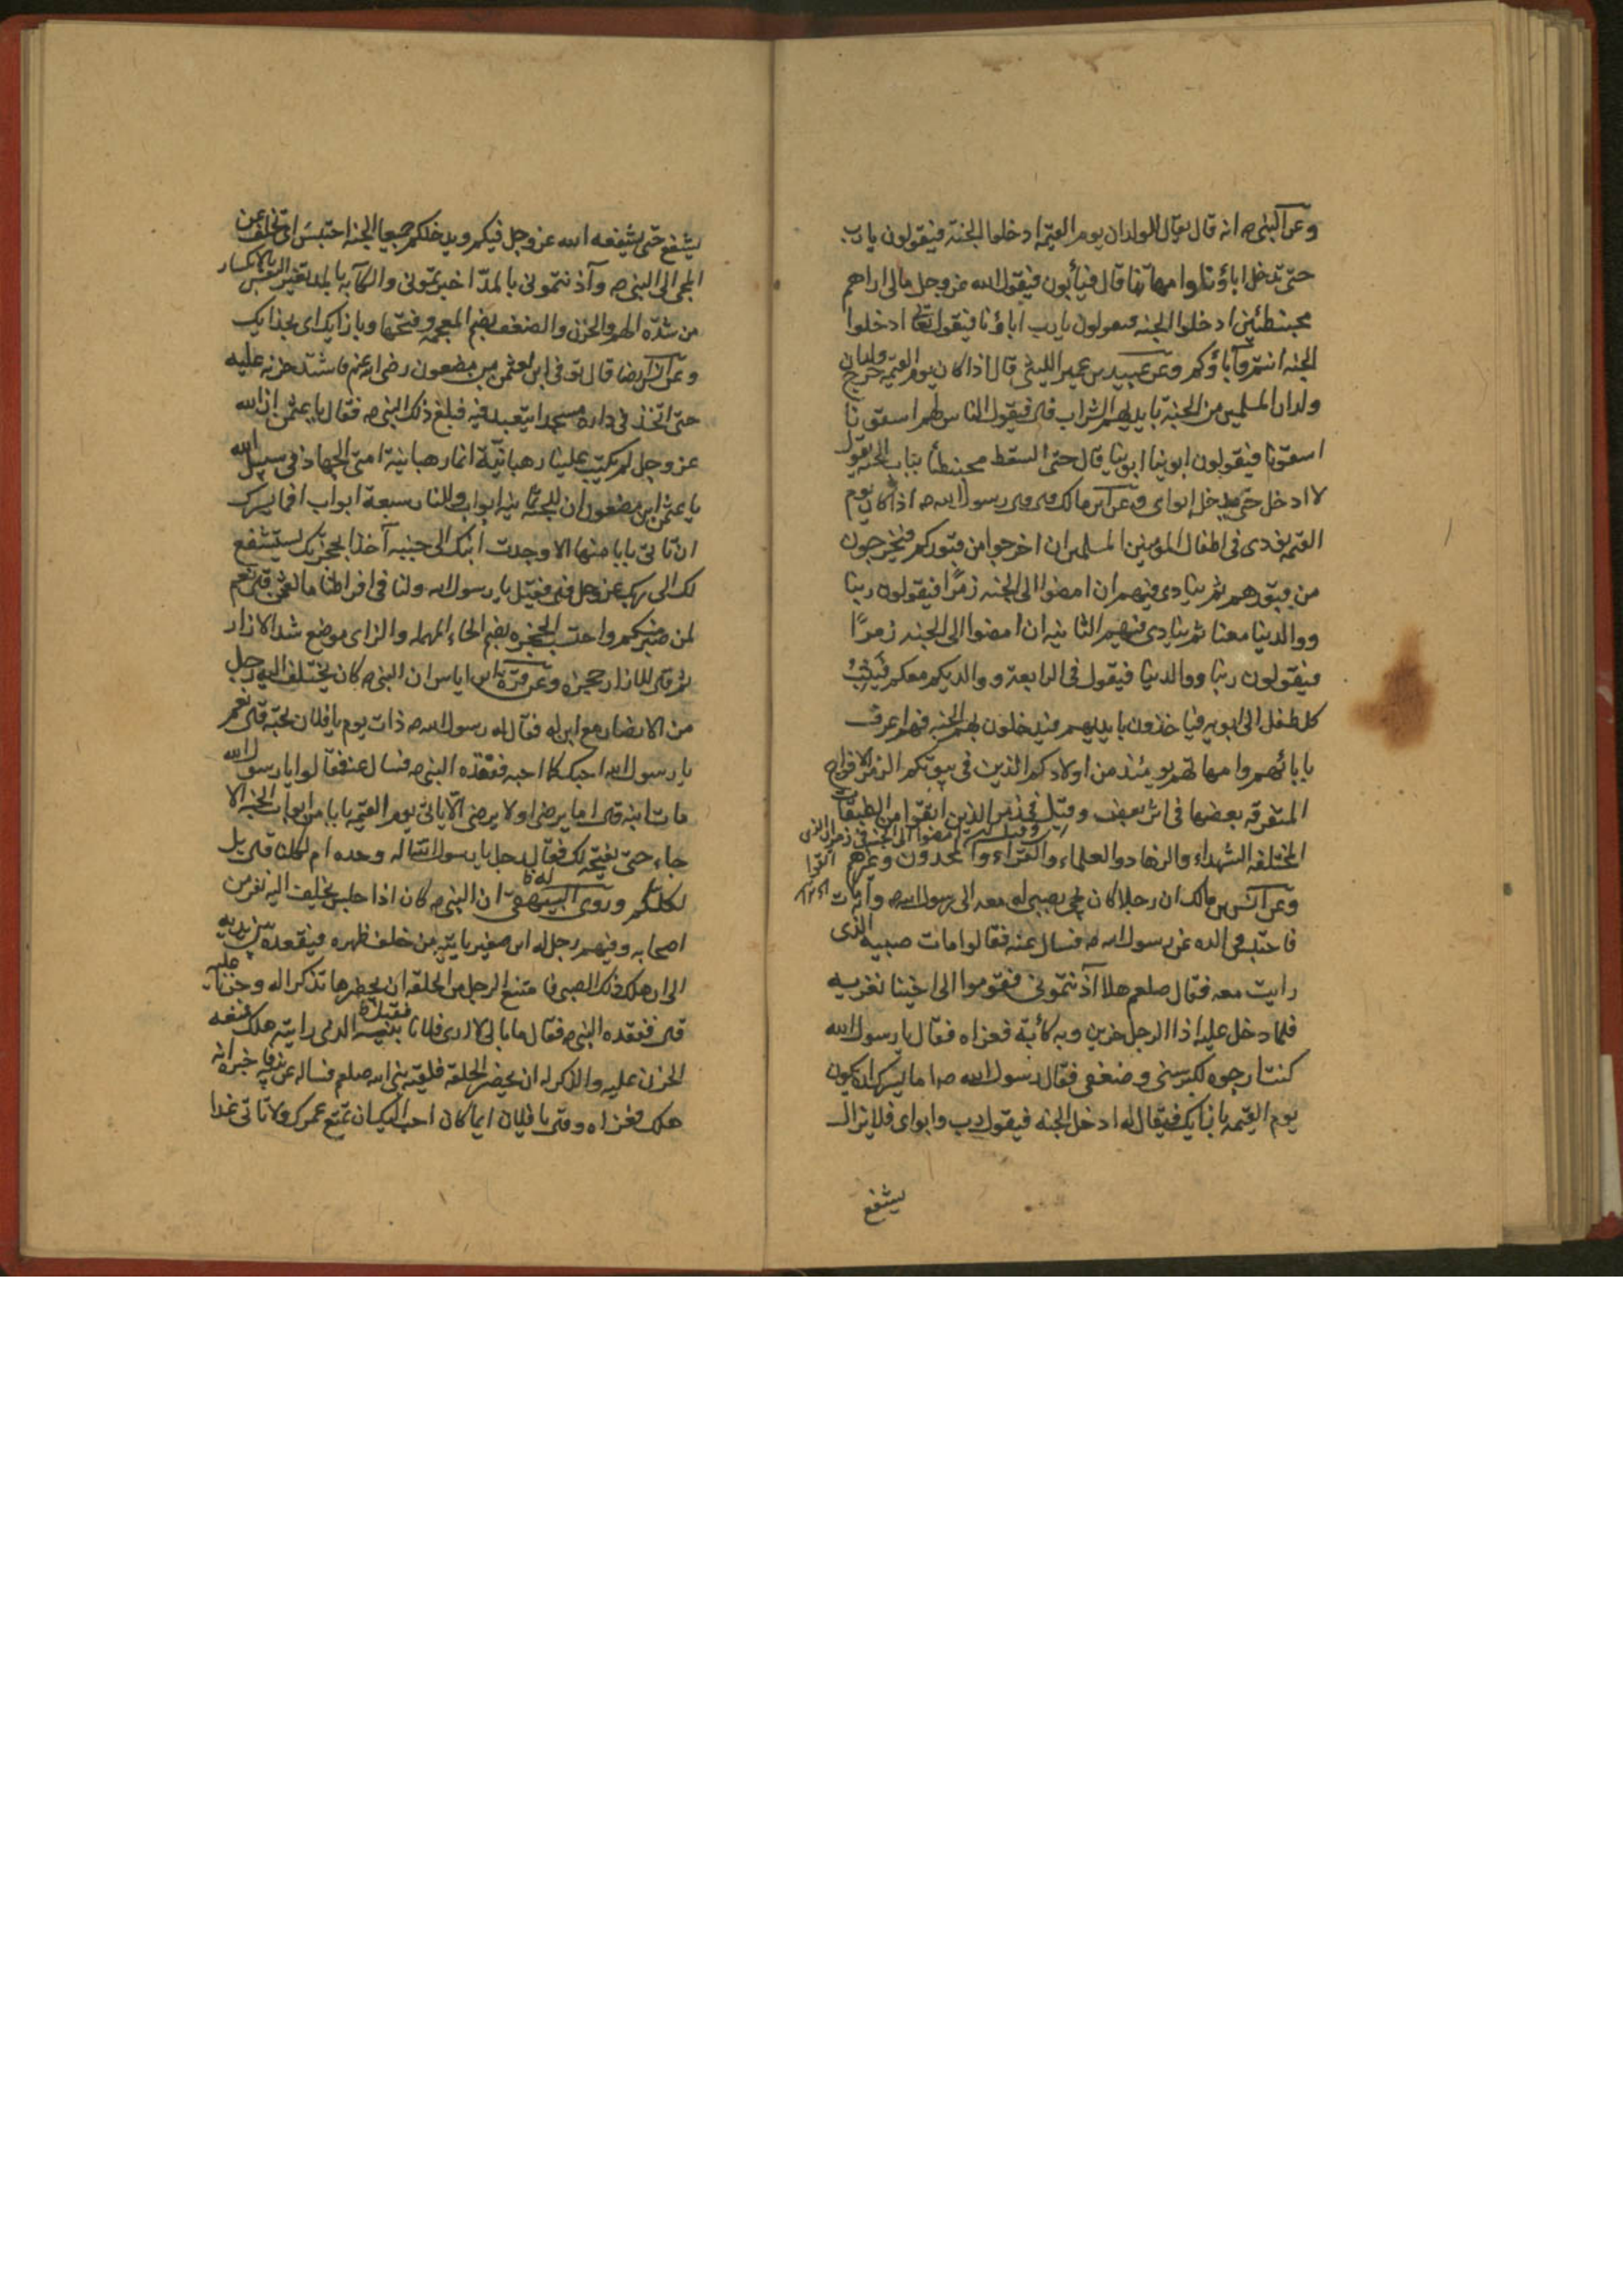 وعن النبى ص انه قال يقال للولدان يوم القيمة ادخلوا الجنة فيقولون يا رب
حتى تدخل اباؤنا وامهاتنا قال فيأبون فيقول الله عز وجل مالى اراهم
محبنطئين ادخلوا الجنه فيقولون يا رب اباؤنا فيقول تعالى ادخلوا
الجنه انتم وآباؤكم وعن عبيد بن عمير الليثى قال اذا كان يوم القيمه خرج ولدان
ولدان المسلمين من الجنة بايديهم الشراب قال فيقول الناس لهم اسقونا
اسقونا فيقولون ابوينا ابوينا قال حتى السقط محبنطأ بباب الجنه يقول
لا ادخل حتى يدخل ابواى وعن انس بن مالك قال قال رسول الله ص اذا كان يوم
القيمه نودى فى اطفال المؤمنين المسلمين ان اخرجوا من قبوركم فيخرجون
من قبورهم ثم ينادى فيهم ان امضوا الى الجنه زمرًا فيقولون ربنا
ووالدينا معنا ثم ينادى فيهم الثانيه ان امضوا الى الجنه زمرًا
فيقولون ربنا ووالدينا فيقول فى الرابعة ووالديكم معكم فيثب
كل طفل الى ابويه فياخذون بايديهم فيدخلون بهم الجنه فهم اعرف
بابائهم وامهاتهم يومئذ من اولادكم الذين فى بيوتكم الزمر الافواج
المتفرقه بعضها فى اثر بعض وقيل فى زمر الذين اتقوا من الطبقات
المختلفه الشهداء والزهاد والعلماء والقراء والمحدثون وغيرهم
وعن انس بن مالك ان رجلا كان يجئ بصبى له معه الى رسول الله ص وانه مات
فاحتبس والده عن رسول الله ص فسال عنه فقالوا مات صبيه الذى
رايت معه فقال صلعم هلا آذنتمونى فقوموا الى اخينا نعزيه
فلما دخل عليه اذا الرجل حزين وبه كأبة فعزاه فقال يا رسول الله
كنت ارجوه لكبر سنى وضعفى فقال رسول الله ص اما يسرك ان يكون
يوم القيمه بازايك فيقال له ادخل الجنه فيقول رب وابواى فلا يزال
يشفع
يشفع حتى يشفعه الله عز وجل فيكم ويدخلكم جميعا الجنه احتبس اى تخلف عن
المجئ الى النبى ص وآذنتمونى بالمدّ اخبرتمونى والكآبه بالمد تغير النفس بالانكسار
من شدّه الهم والحزن والضعف بضم المعجمه وفتحها وبازايك اى بحذايك
وعن انس ايضا قال توفى ابن لعثمن بن مضعون رضى الله عنهم فاشتد حزنه عليه
حتى اتخذ فى داره مسجدا يتعبد فيه فبلغ ذلك النبى ص فقال يا عثمن ان الله
عز وجل لم يكتب علينا رهبانيّة انما رهبانية امتى الجهاد فى سبيل الله
يا عثمن ابن مضعون ان للجنة ثمانيه ابواب وللنار سبعة ابواب افما يسرك
ان تاتى بابا منها الا وجدت ابنك الى جنبه آخذا بحجزتك يستشفع
لك الى ربك عز وجل قال فقيل يا رسول الله ولنا فى افراطنا ما لعثمن قال نعم
لمن صبر منكم واحتسب الحجزه بضم الحاء المهمله والزاى موضع شد الازار
ثم قيل للازار حجزه وعن قرّة بن اياس ان النبى ص كان يختلف اليه رجل
من الانصار مع ابن له فقال له رسول الله ص ذات يوم يا فلان تحبّه قال نعم
يا رسول الله احبك كما احبه ففقده النبى ص فسال عنه فقالوا يا رسول الله
مات ابنه قال اما يرضى او لا يرضى الّا ياتى يوم القيمه بابا من ابواب الجنه الا
جاء حتى يفتحه لك فقال رجل يا رسول الله اله وحده ام لكلنا قال بل
لكلكم وروى البيهقى ان النبى ص كان اذا جلس يحلّق اليه نفر من
اصحابه وفيهم رجل له ابن صغير ياتيه من خلف ظهره فيقعده بين يديه
الى ان هلك ذلك الصبى فامتنع الرجل من الحلقه ان يحضرها تذكرا له وحزنا عليه
قال ففقده النبى ص فقال ما بالى لا ارى فلانا بنيه الذى رايته هلك فمنعه
الحزن عليه والذكر له ان يحضر الحلقة فلقيه نبى الله صلعم فساله عن بنيه فاخبره انه
هلك فعزاه وقال يا فلان ايما كان احب اليك ان تمتع عمرك ولا تاتى غدا